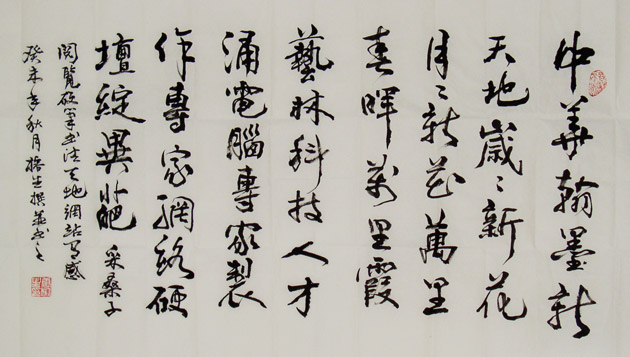 中華翰墨新
天地歲〻新花
月〻新花萬里
春暉萬里霞
藝林科技人才
涌電腦專家製
作專家網絡硬
壇綻異葩 采桑子
閱覽硬筆書法天地網站有感
癸未年秋月 生撰並書之